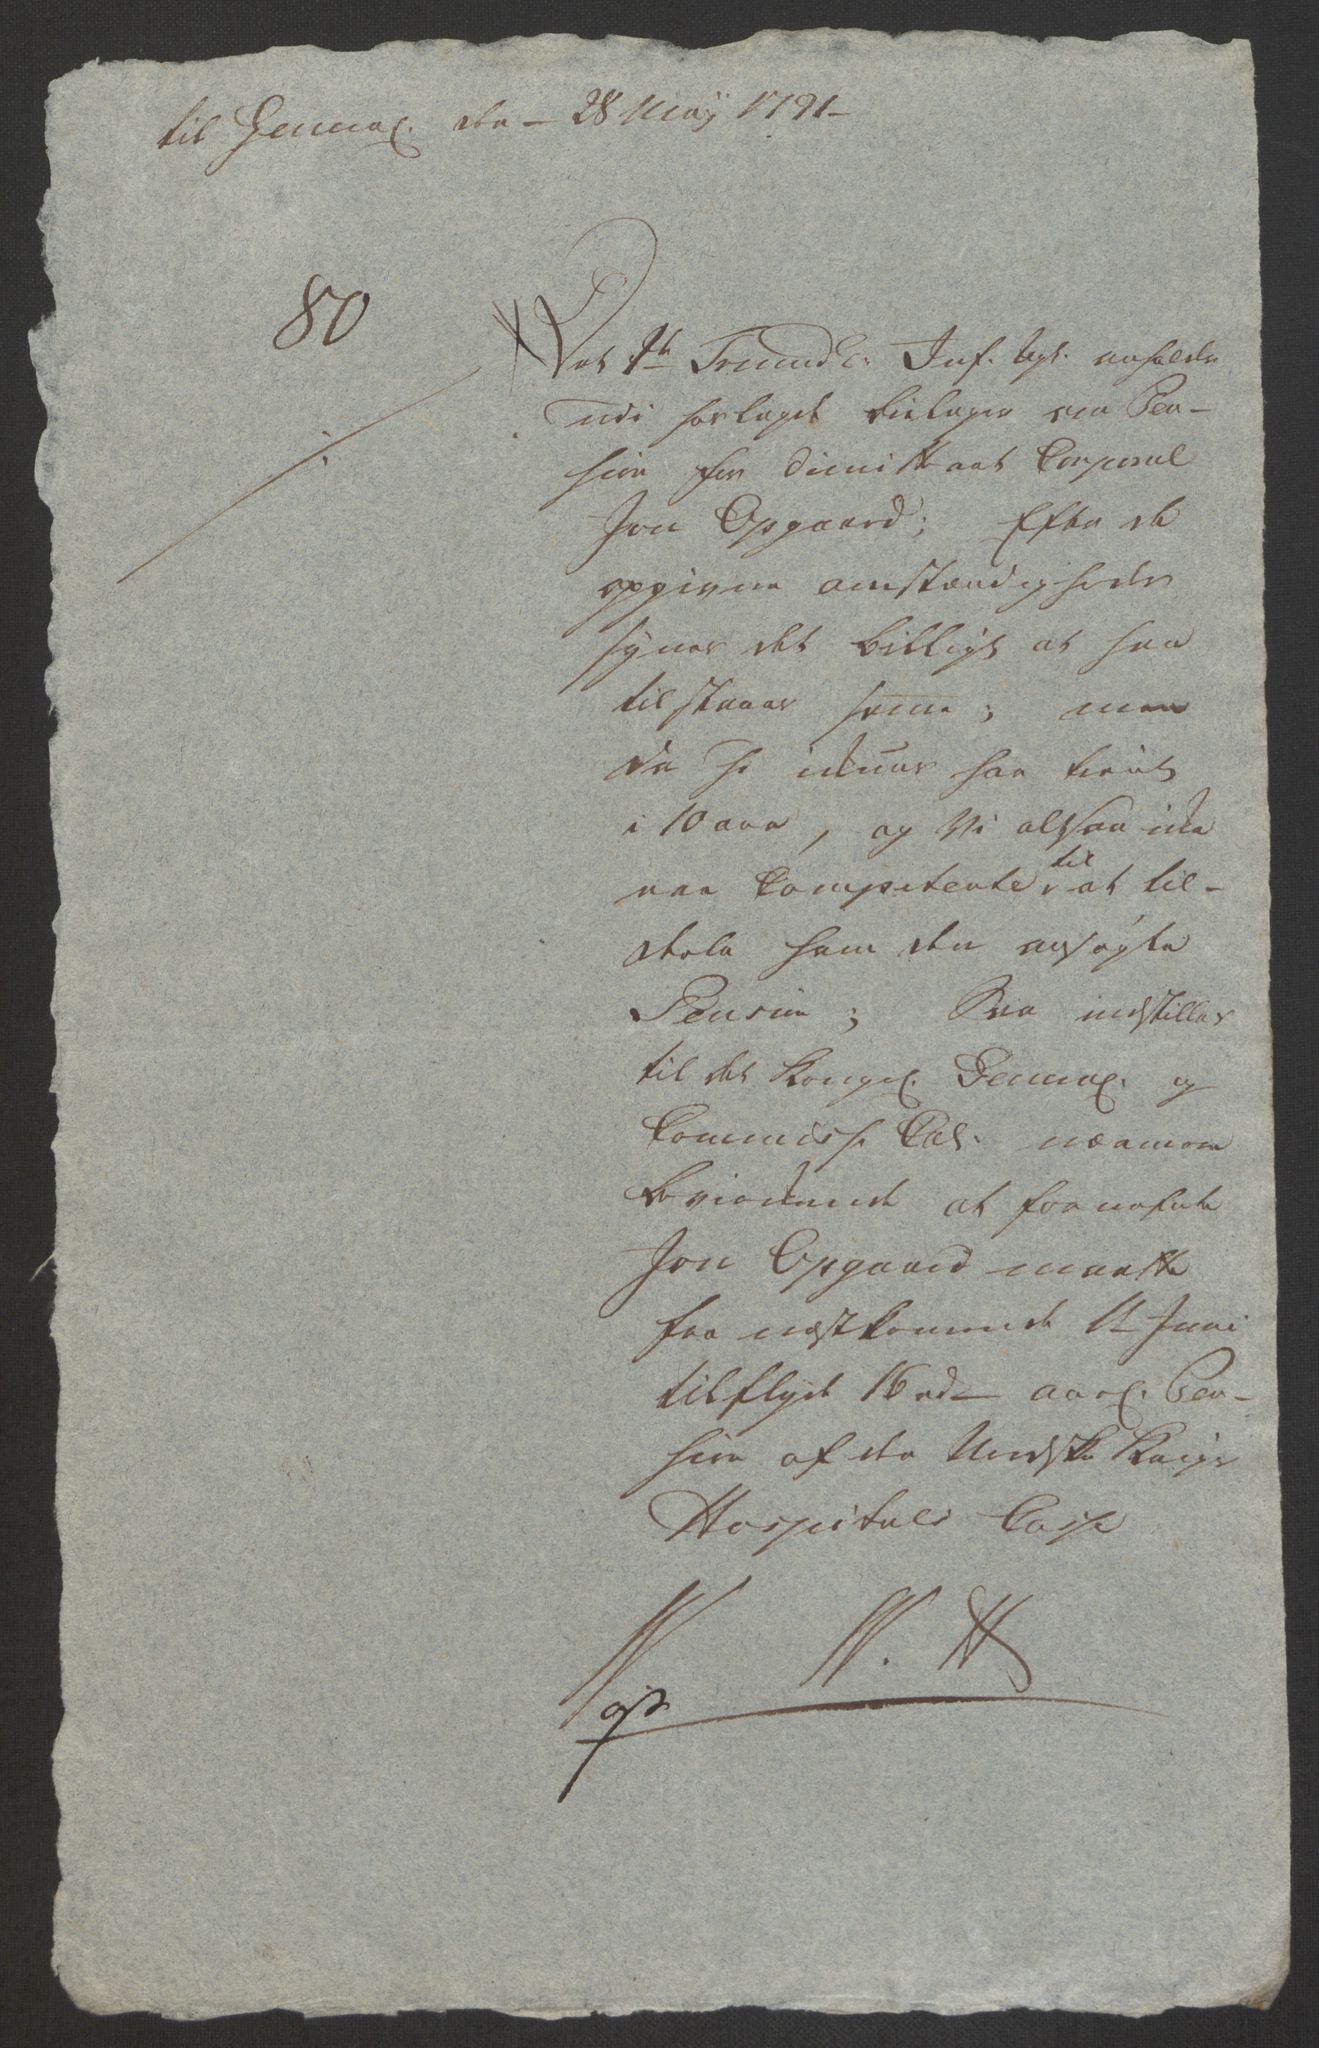 til General. den 28 Maij 1791
80
Det 1te Trundh. Inf. Rgt. anholder
udi hoslagde bielager om Pen-
sion for dimitteret Corporal
Jon Opgaard; Efter de
opgivne omstændigheder
synes det billigt at han
tilstaaes samme; men
da he ickuns har tient
i 10 aar, og Vi altsaa icke
ere Competente til at til-
dele ham den ansøgte
Pension; Saa indstilles
til det Kongel. General. og
Commiss. Col. nærmere
bekiendt at forommelte
Jon Opgaard maatte
fra næstkommende 1te Juni
tilflyde 16 rd aarl. Pen-
sion af den Norske Krigs
Hospitals Casse